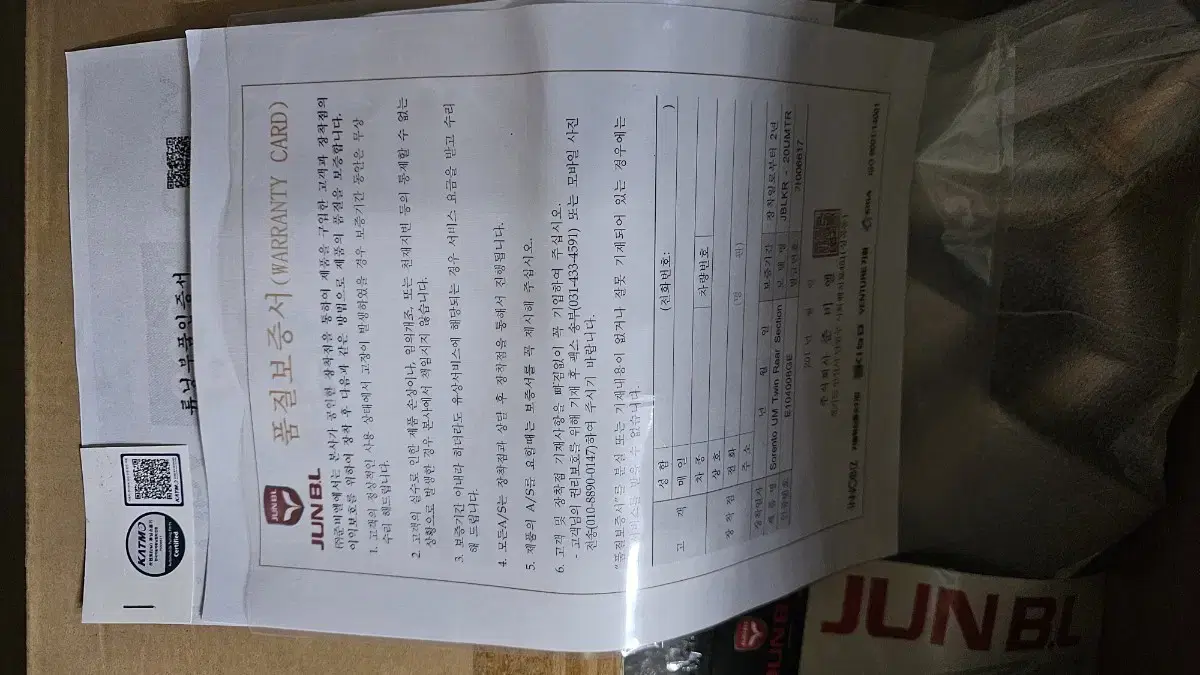 품질보증서(WARRANTY CARD)
JUNBL
JUNBL
㈜준비엘에서는 본사가 공인한 장착점을 통하여 제품을 구입한 고객과 장착점의
이익보호를 위하여 장착 후 다음과 같은 방법으로 제품의 품질을 보증합니다.
1. 고객의 정상적인 사용 상태에서 고장이 발생하였을 경우 보증기간 동안은 무상
수리 해드립니다.
2. 고객의 실수로 인한 제품 손상이나, 임의개조, 또는 천재지변 등의 통제할 수 없는
상황으로 발생한 경우 본사에서 책임지지 않습니다.
3. 보증기간 이내라 하더라도 유상서비스에 해당되는 경우 서비스 요금을 받고 수리
해 드립니다.
4. 모든A/S는 장착점과 상담 후 장착점을 통해서 진행됩니다.
5. 제품의 A/S를 요할때는 보증서를 꼭 제시해 주십시오.
6. 고객 및 장착점 기재사항을 빠짐없이 꼭 기입하여 주십시오.
- 고객님의 권리보호를 위해 기재 후 팩스 송부(031-433-4591) 또는 모바일 사진
전송(010-8890-0147)하여 주시기 바랍니다.
"품질보증서"를 분실 또는 기재내용이 없거나 잘못 기재되어 있는 경우에는
서비스를 받을 수 없습니다.
고 객
성 함 (전화번호: )
매 인
차 종 차량번호
장 착 점
상 호
전 화
주 소
장착일자 년 월 일 보증기간 장착일로부터 2년
품 목 명 Sorento UM Twin Rear Section 모 델 명 JBLKR - 20UMTR
인증번호 E104008GE
201 년 월 일
주식회사 준 비 엘
INNOBIZ
VENTURE 기업
ISO 9001/14001
튜닝부품인증서
KATMO
Certified
KATMO
JUNBL
JUNBL